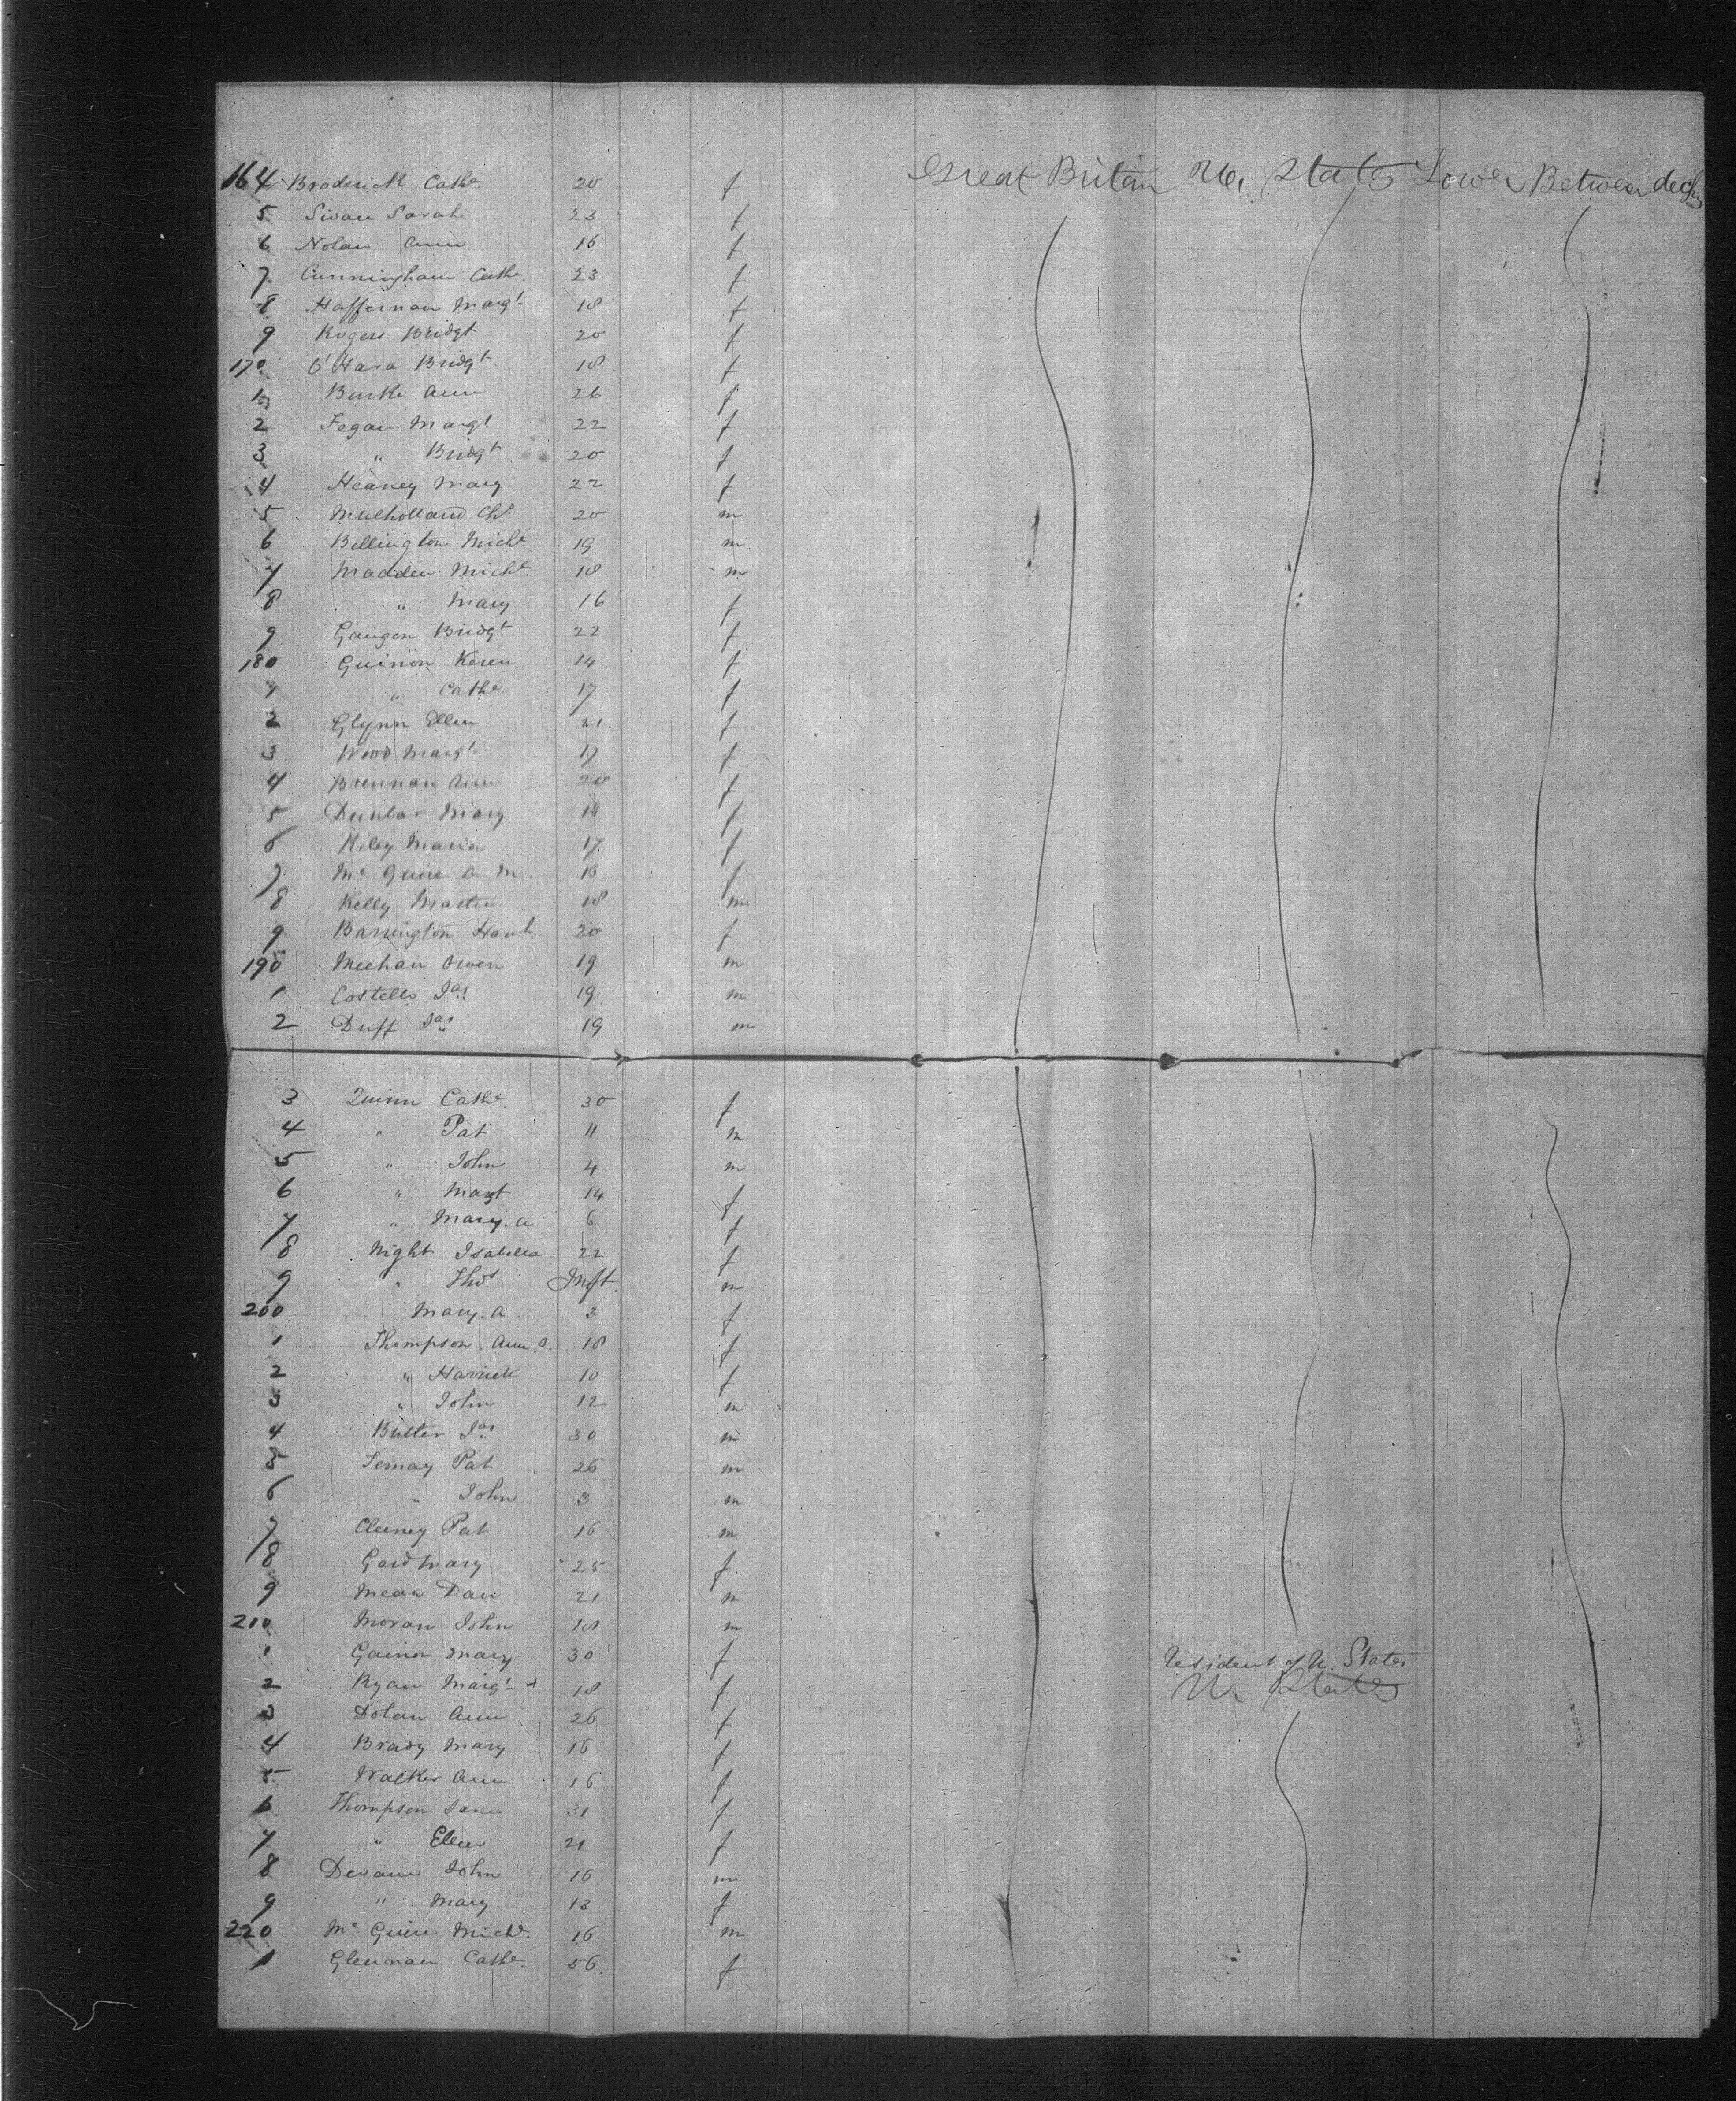 164 Broderick Cathe 20 f Great Britain U. States Lower Between decks
5 Sivan Sarah 23 f
6 Nolan Ann 16 f
7 Cunningham Cathe 23 f
8 Haffernan Margt 18 f
9 Rogers Bridgt 20 f
170 O'Hara Bridgt 18 f
1 Burke Ann 26 f
2 Fegan Margt 22 f
3 " Bridgt 20 f
4 Heaney Mary 22 f
5 Mulholland Chs 20 m
6 Bellington Michl 19 m
7 Madden Michl 18 m
8 " Mary 16 f
9 Gaugen Bridgt 22 f
180 Guinon Keren 14 f
1 " Cathe 17 f
2 Glynn Ellen 21 f
3 Wood Margt 17 f
4 Brennan Ann 20 f
5 Dunbar Mary 19 f
6 Riley Maria 17 f
7 Mc Guire A M. 16 f
8 Kelly Martin 18 m
9 Barrington Hanh 20 f
190 Meehan Owen 19 m
1 Costello Jas 19 m
2 Duff Jas 19 m
3 Quinn Cathe 30 f
4 " Pat 11 m
5 " John 4 m
6 " Margt 14 f
7 " Mary. A 6 f
8 Night Isabella 22 f
9 " Thos Inft. m
200 Mary. A. 3 f
1 Thompson Ann S. 18 f
2 " Harriet 10 f
3 " John 12 m
4 Butter Jas 30 m
5 Ternay Pat 26 m
6 " John 3 m
7 Cluney Pat 16 m
8 Gard Mary 25 f
9 Mean Dan 21 m
210 Moran John 18 m
1 Gainor Mary 30 f resident of U. States
2 Ryan Margt 18 f U. States
3 Dolan Ann 26 f
4 Brady Mary 16 f
5 Walker Ann 16 f
6 Thompson Jane 31 f
7 " Ellen 21 f
8 Devann John 16 m
9 " Mary 13 f
220 Mc Guire Michl. 16 m
1 Glennan Cathe. 56 f